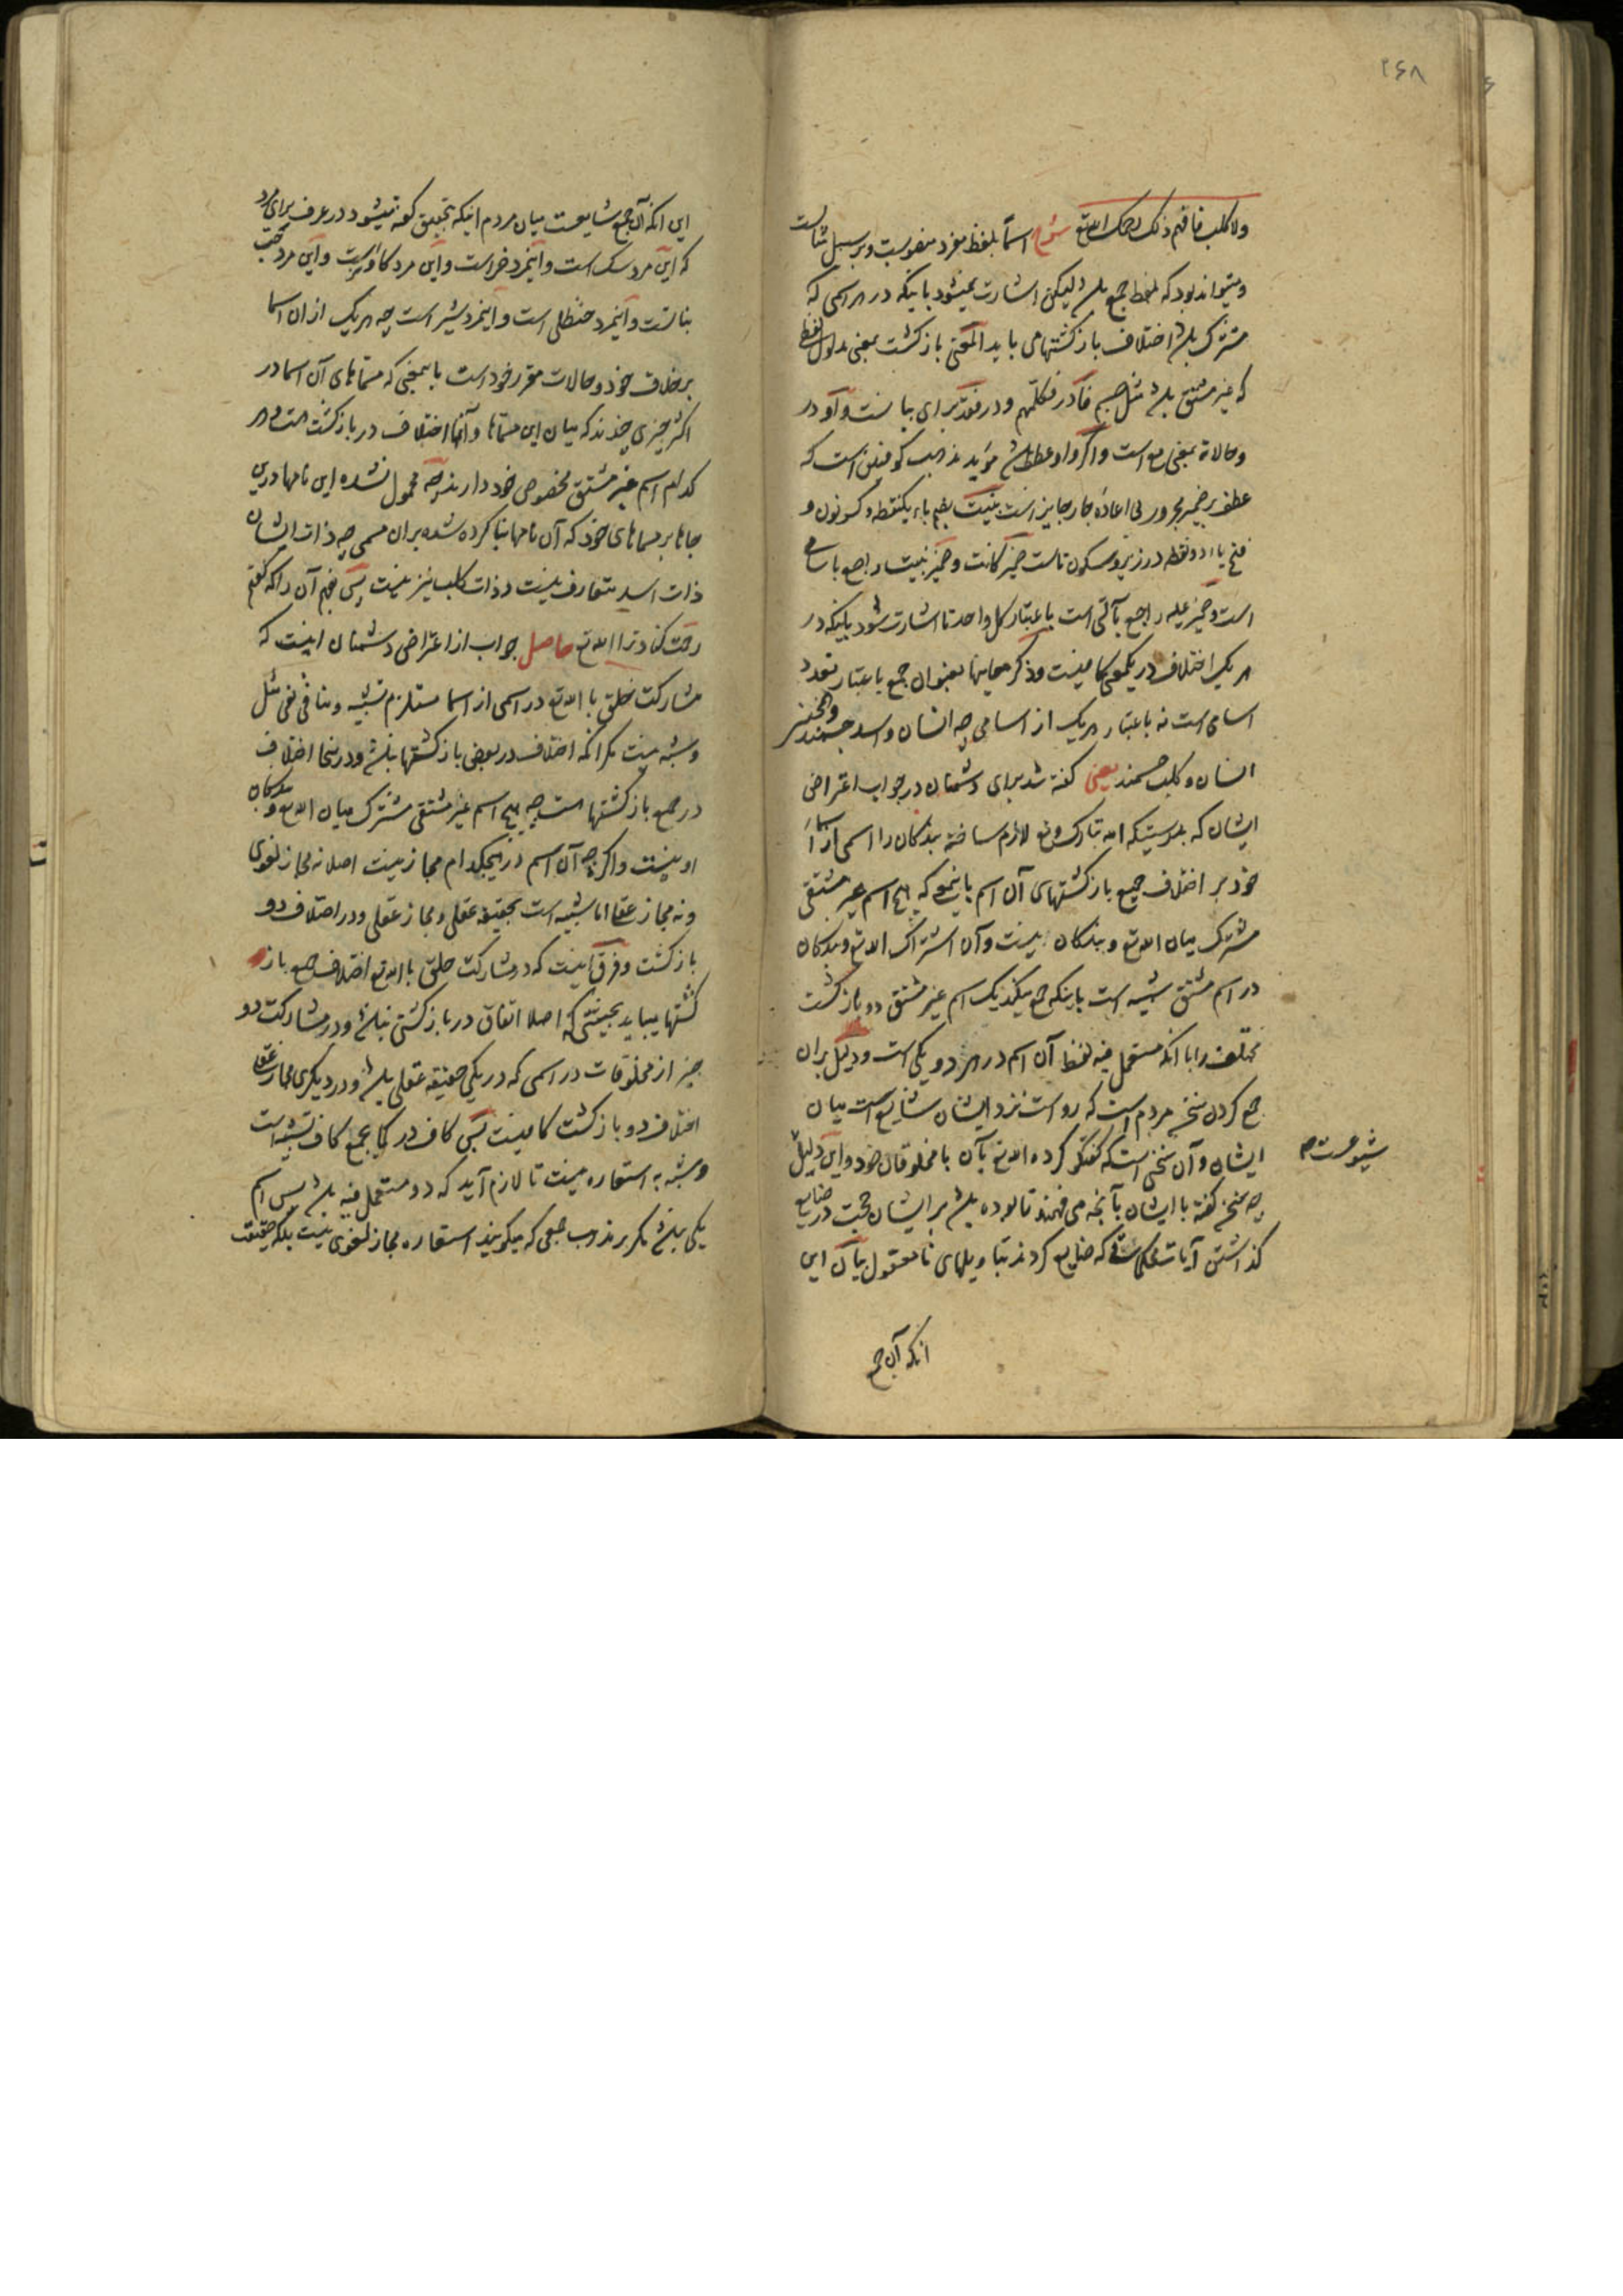 ۲۶۸
ولا کلب فافهم ذلک رحمک الله تع شرح اسماً بلفظ مفرد منصوبست و بر سبیل مثالست
و میتواند بود که بلفظ جمع باشد لیکن اشارت نمیشود باینکه در هر اسمی که
مشترک باشد اختلاف بازگشتها می باید المعنی بازگشت بمعنی مدلول لفظ
که غیر مشتق باشد مثل جسم فا در فکلمهم و در فقد برای بیانست واو در
وحالاته بمعنی مع است و اگر واو عطف باشد مؤید مذهب کوفیین است که
عطف بر ضمیر مجرور بی اعاده جار جایز است بنیت بضم باء یکنقطه و کسر نون و
فتح یاء دو نقطه در زیر و سکون تاست ضمیر کانت و ضمیر بنیت راجع باسامی
است و ضمیر علیه راجع بآلتی است باعتبار کل واحد تا اشارت شود باینکه در
هر یک اختلاف در یکمعنی کافینست و ذکر معانیها بعنوان جمع باعتبار تعدد
اسامی است نه باعتبار هر یک از اسامی چه انسان و اسد جسمند و همچنین
انسان و کلب جسمند یعنی گفته شد برای دشمنان در جواب اعتراض
ایشان که بدرستیکه الله تبارک و تع لازم ساخته بندگان را اسمی از اسماء
خود بر اختلاف جمیع بازگشتهای آن اسم باینمعنی که هیچ اسم غیر مشتقی
مشترک میان الله تع و بندگان نیست و آن اشتراک الله تع و بندگان
در اسم مشتق شبیه است باینکه جمع میکند یک اسم غیر مشتق دو بازگشت
مختلف را با آنکه مستعمل فیه لفظ آن اسم در هر دو یکی است و دلیل بران
جمع کردن سخن مردم است که رواست نزد ایشان شایع است میان
ایشان و آن سخنی است که گفتگو کرده الله تع بآن با مخلوقان خود و این دلیل
شیوعست
چه سخن گفته با ایشان بآنچه می فهمند تا بوده باشد بر ایشان حجت در ضایع
گذاشتن آیات محکماتی که ضایع کردند بتاویلهای نامعقول بیان این
انکه آن جمع
این انکه آن جمع شایعست میان مردم اینکه بتحقیق گفته میشود در عرف برای مرد
که این مرد سک است و اینمرد خر است و این مرد کاوست و این مرد
بناتست و اینمرد حنظلی است و اینمرد شیر است چه هر یک از ان اسما
بر خلاف خود و حالات مقرر خود است باینمعنی که مسماهای آن اسما در
اکثر چیزی چندند که میان این مسماها و آنها اختلاف در بازگشت هست و هر
کدام اسم غیر مشتق مخصوص خود دارند چه محمول نشده این نامها درین
جاها بر مسماهای خود که آن نامها بنا کرده شده بران مسمی چه ذات انسان
ذات اسد متعارف نیست و ذات کلب نیز نیست پس بفهم آن را که گفتم
رحمت کناد ترا الله تع حاصل جواب از اعتراض دشمنان اینست که
مشارکت خلق با الله تع در اسمی از اسما مستلزم تشبیه و منافی نفی مثل
و شبه نیست مگر آنکه اختلاف در بعض بازگشتها نباشد و در ینجا اختلاف
در جمیع بازگشتها هست چه هیچ اسم غیر مشتقی مشترک میان الله تع و بندگان
او نیست و اگر چه آن اسم در هیچکدام مجاز نیست اصلا نه مجاز لغوی
و نه مجاز عقلی اما شبیه است بحقیقه عقلی و مجاز عقلی و در اختلاف دو
بازگشت و فرق آنست که در مشارکت خلق با الله تع اختلاف جمیع باز
گشتها میباید بحیثیتی که اصلا اتفاق در بازگشتی نباشد و در مشارکت دو
چیز از مخلوقات در اسمی که در یکی حقیقه عقلی باشد و در دیگری مجاز عقلی
اختلاف دو بازگشت کافینست پس کاف در کما یجمع کاف تشبیه است
و مشبه به استعاره نیست تا لازم آید که دو مستعمل فیه باشد پس اسم
یکی نباشد مگر بر مذهب جمعی که میگویند استعاره مجاز لغوی نیست بلکه حقیقت